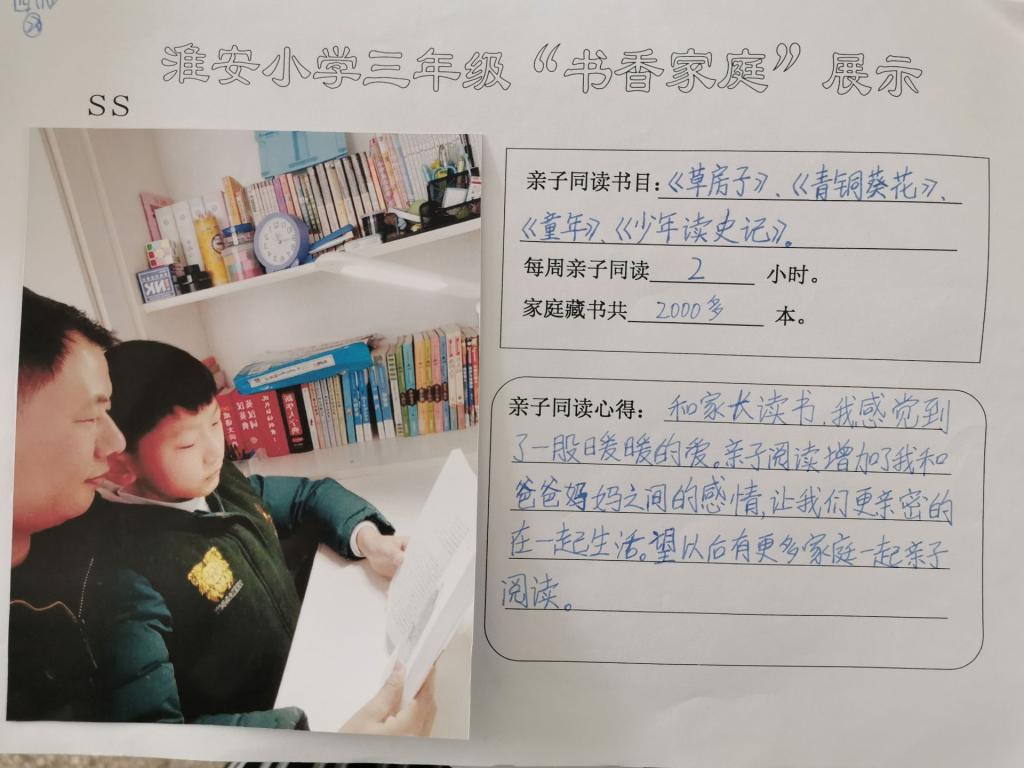 淮安小学三年级“书香家庭”展示
SS
亲子同读书目:《草房子》、《青铜葵花》、
《童年》、《少年读史记》。
每周亲子同读 2 小时。
家庭藏书共 2000多 本。
亲子同读心得: 和家长读书，我感觉到
了一股暖暖的爱。亲子阅读增加了我和
爸爸妈妈之间的感情，让我们更亲密的
在一起生活。望以后有更多家庭一起亲子
阅读。
INK